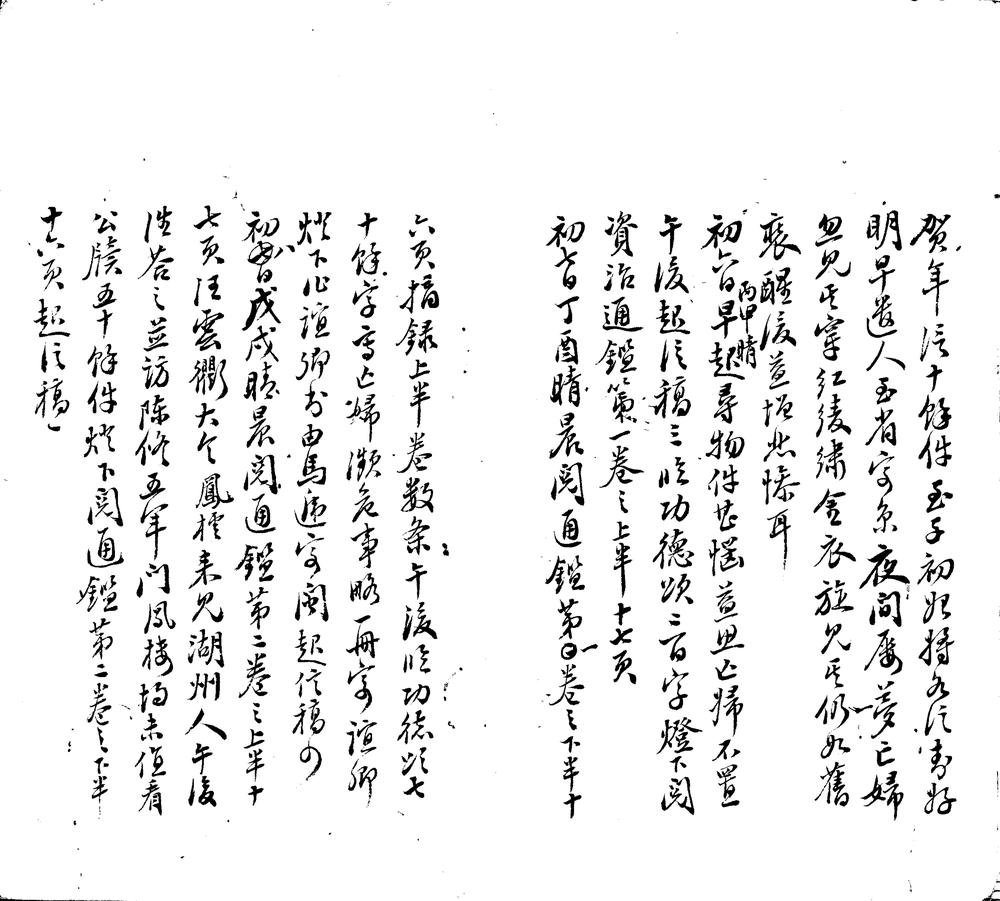 賀年信十餘件至子初始將各信封好
明早遣人至省寄京夜間屢夢亡婦
忽見其穿紅綾繡金衣旋見其仍如舊
裝醒後益增悲悼耳
初六日丙申晴早起尋物件甚惱益思亡婦不置
午後起信稿三臨功德頌二百字燈下閱
資治通鑑第一卷之上半十七頁
初七日丁酉晴晨閱通鑑第一卷之下半十
六頁摘錄上半卷數條午後臨功德頌七
十餘字寫亡婦瀕危事略一冊寄誼卿
燈下作誼卿書由馬遞寄閩起信稿四
初八日戊戌晴晨閱通鑑第二卷之上半十
七頁汪雲衢大令鳳樓來見湖州人午後
往答之並訪陳修五軍門鳳樓均未值看
公牘五十餘件燈下閱通鑑第二卷之下半
十六頁起信稿一